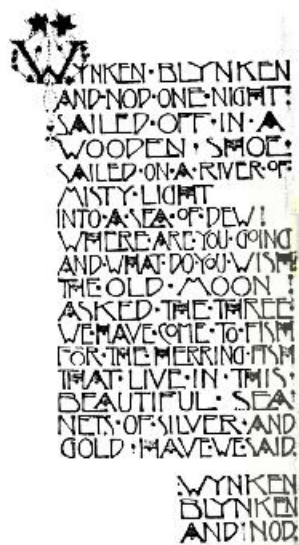 WYNKEN·BLYNKEN
AND·NOD·ONE·NIGHT·
SAILED·OFF·IN·A
WOODEN·SHOE·
SAILED·ON·A·RIVER·OF
MISTY·LIGHT
INTO·A·SEA·OF·DEW!
WHERE·ARE·YOU·GOING
AND·WHAT·DO·YOU·WISH
THE OLD·MOON!
ASKED·THE·THREE
WE HAVE·COME·TO·FISH
FOR·THE·HERRING·FISH
THAT·LIVE·IN·THIS·
BEAUTIFUL·SEA
NETS·OF·SILVER·AND
GOLD·HAVE WE SAID.
WYNKEN
BLYNKEN
AND NOD.